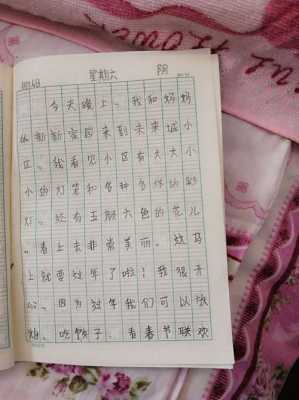 星期六 阴
今天晚上，我和妈妈
从新新家园来到未来城小
区。我看见小区有大大小
小的灯笼和各种各样的彩
灯。还有五颜六色的花儿
，看上去非常美丽。这马
上就要过年了啦！我很开
心。因为过年我们可以放
炮、吃饺子、看春节联欢